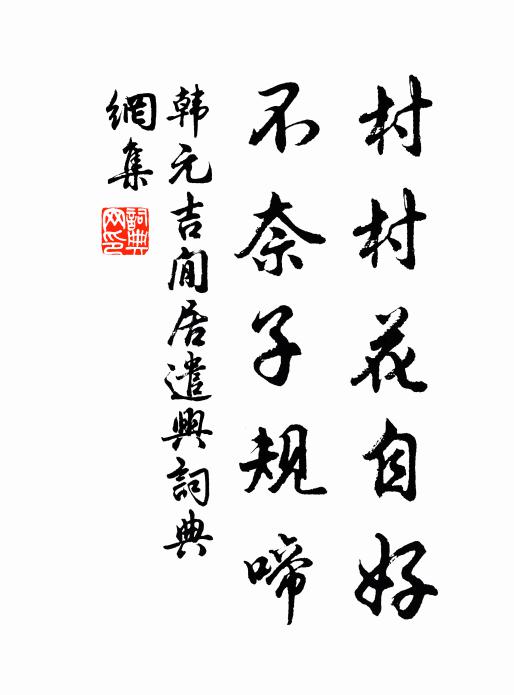 村村花自好
不奈子規啼
韩元吉閒居遣興詞典
網集
詞典
网印